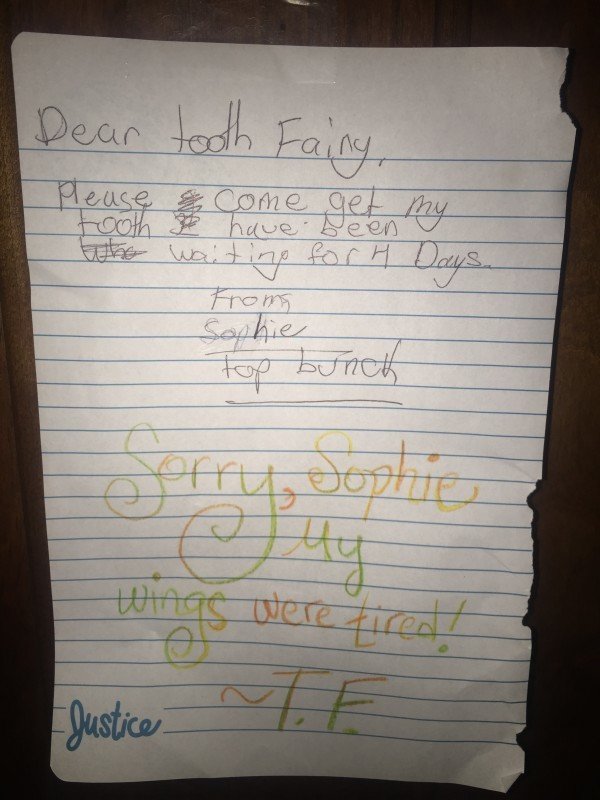 Dear tooth Fairy,
Please come get my
tooth I have been
waiting for 4 Days.
From,
Sophie
top bunck
Sorry, Sophie
My
wings were tired!
~T.F.
Justice